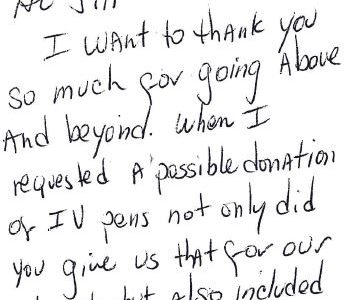 I WANT to thANK you
So much for going Above
And beyond. When I
requested A possible donATION
of IV pens not only did
you give us thAT for our
but also included